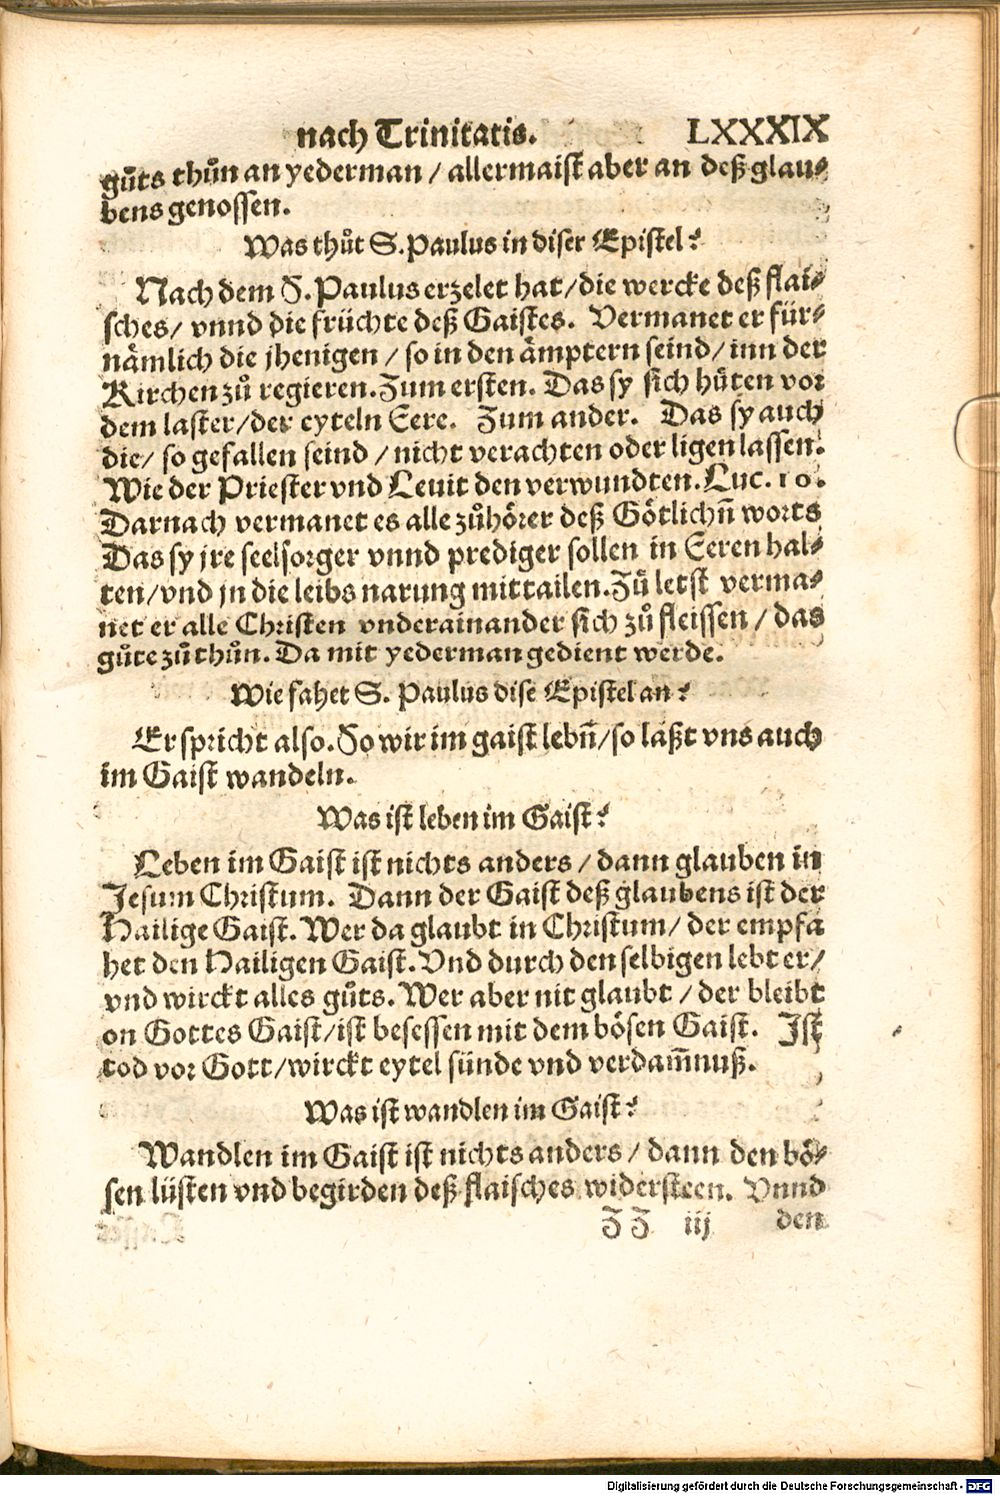 nach Trinitatis. LXXXIX
gůts thůn an yederman / allermaist aber an deß glau⸗
bens genossen.
Was thůt S. Paulus in diser Epistel?
Nach dem S. Paulus erzelet hat / die wercke deß flai⸗
sches / vnnd die früchte deß Gaistes. Vermanet er für⸗
nämlich die jhenigen / so in den ämptern seind / inn der
Kirchen zů regieren. Zum ersten. Das sy sich hüten vor
dem laster / der eyteln Eere. Zum ander. Das sy auch
die / so gefallen seind / nicht verachten oder ligen lassen.
Wie der Priester vnd Leuit den verwundten. Luc. 10.
Darnach vermanet es alle zůhörer deß Götlichn̄ worts
Das sy jre seelsorger vnnd prediger sollen in Eeren hal⸗
ten / vnd jn die leibs narung mittailen. Zů letst verma⸗
net er alle Christen vnderainander sich zů fleissen / das
gůte zů thůn. Da mit yederman gedient werde.
Wie fahet S. Paulus dise Epistel an?
Er spricht also. So wir im gaist lebn̄ / so laßt vns auch
im Gaist wandeln.
Was ist leben im Gaist?
Leben im Gaist ist nichts anders / dann glauben in
Jesum Christum. Dann der Gaist deß glaubens ist der
Hailige Gaist. Wer da glaubt in Christum / der empfa
het den Hailigen Gaist. Vnd durch den selbigen lebt er /
vnd wirckt alles gůts. Wer aber nit glaubt / der bleibt
on Gottes Gaist / ist besessen mit dem bösen Gaist. Ist
tod vor Gott / wirckt eytel sünde vnd verdam̄nuß.
Was ist wandlen im Gaist?
Wandlen im Gaist ist nichts anders / dann den bö⸗
sen lüsten vnd begirden deß flaisches widersteen. Vnnd
ZZ iij den
Digitalisierung gefördert durch die Deutsche Forschungsgemeinschaft - DFG